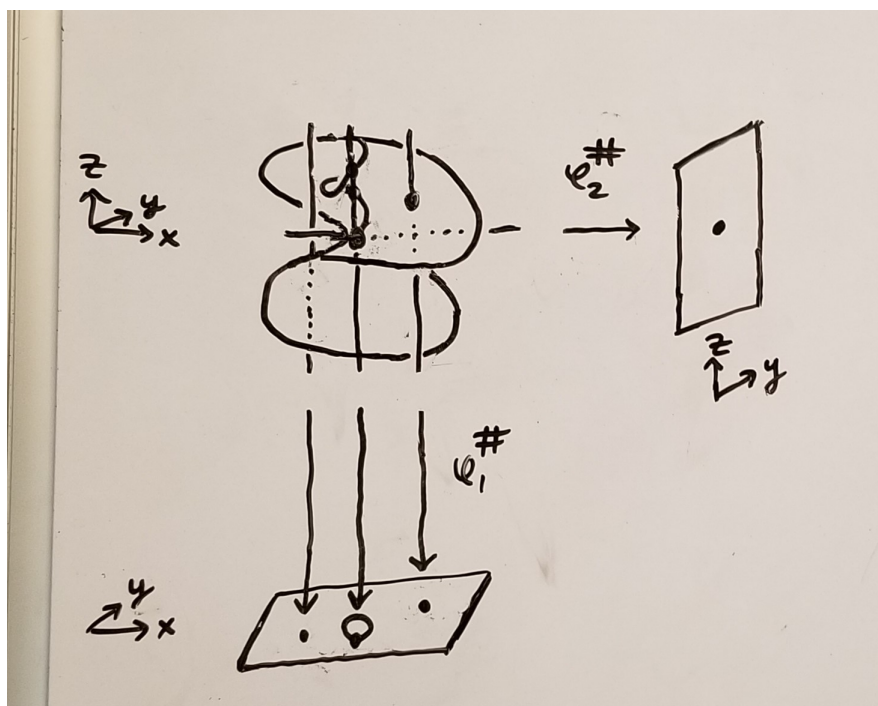 z
y
x
φ₂^#
z
y
φ₁^#
y
x